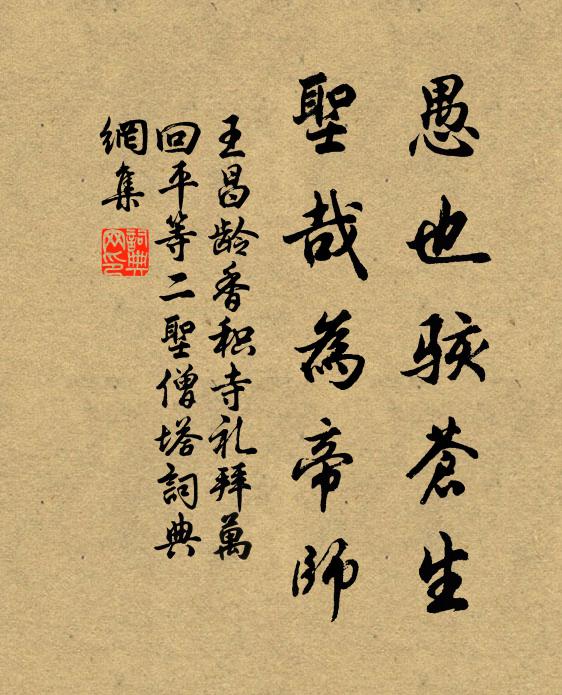 愚也駭蒼生
聖哉為帝師
王昌龄香积寺礼拜萬
回平等二聖僧塔詞典
網集
詞典
网印